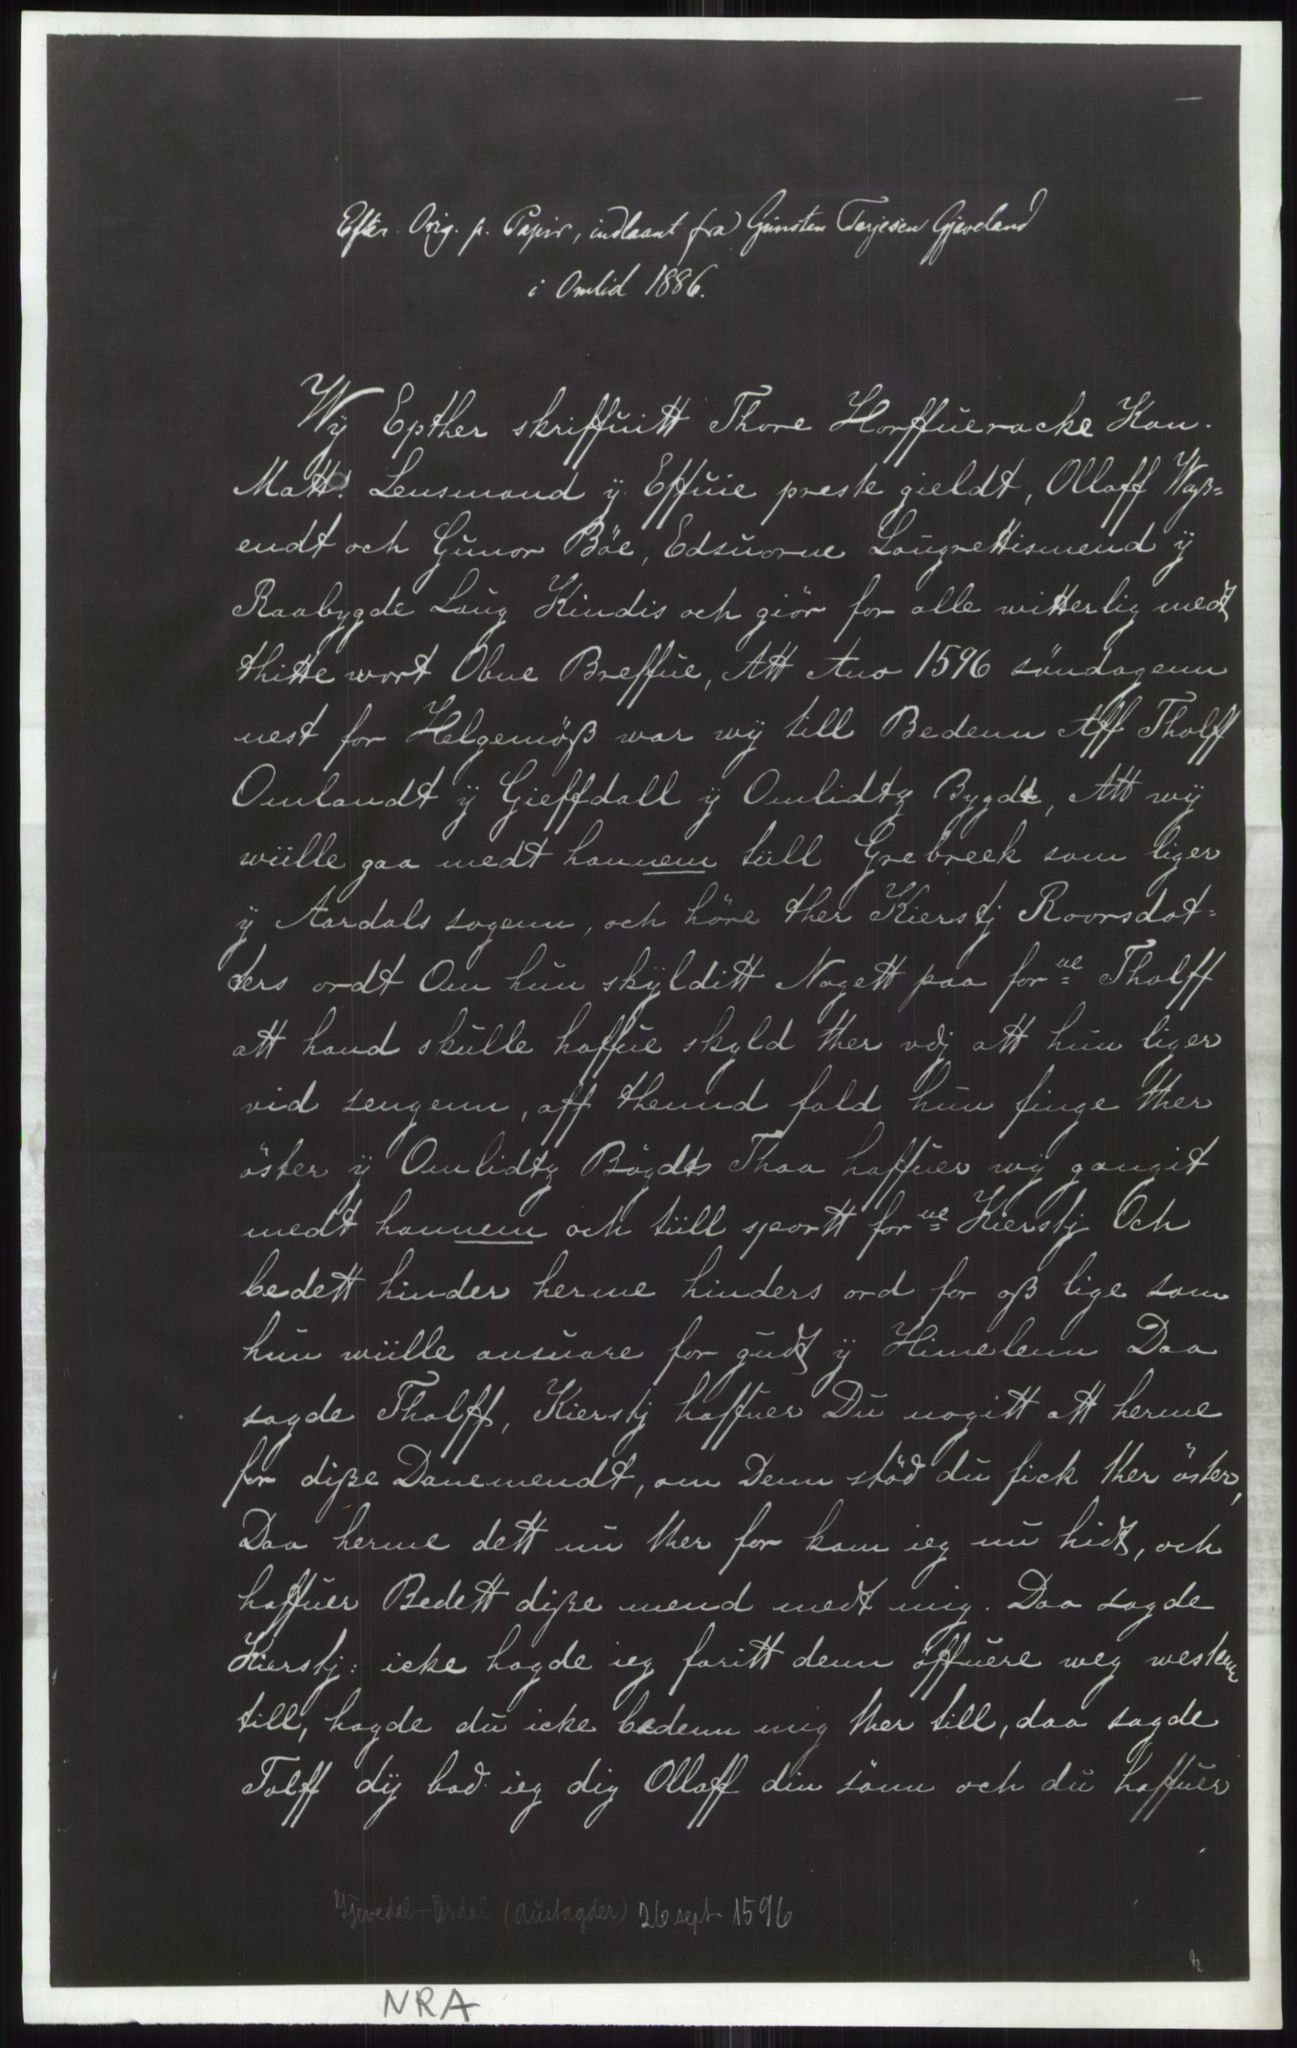 Efter Orig. p. Papir, indlaant fra Gunsten Terjesen Gjeveland
i Omlid 1886.
Wÿ Epther skriffuitt Thore Horffueracke Kon.
Matt. Lensmand ÿ Effuie preste gieldt, Olaff Waß=
endt och Gunor Böe, Edsuorne Laugrettismend ÿ
Raabygde Laug Kindis och giör for alle witterlig medt
thitte wort Obne Breffue, Att Ano 1596 söndagenn
nest for Helgemöß war wÿ till Bedenn Aff Tholff
Omlandt ÿ Gieffdall ÿ Omlidtz Bygdt, Att wÿ
wülle gaa medt hannem tüll Grebreek som liger
ÿ Aardals sogenn, och höre ther Kierstj Roorsdot=
ters ordt Om hun skÿlditt Nogett paa forne Tholff
att hand skulle haffue skyld ther vdj att hun liger
vid sengenn, aff thennd fald hun finge ther
öster ÿ Omlidtz Böÿdt Thaa haffuer wÿ gangit
medt hannem och tüll sportt forne Kierstj Och
bedett hinder herme hinders ord for oß lige som
hun wülle ansuare for gudt ÿ Himelenn Daa
sagde Tholff, Kierstj haffuer Du nogitt att herme
for diße Danemendt, om Denn stöd du fick ther öster,
Daa herme dett nu ther for kom ieg nu hidt, och
haffuer Bedett diße mend medt mig. Daa sagde
Kierstj: icke hagde ieg faritt denn öffuere weg westenn
till, hagde du icke bedenn mig ther till, daa sagde
Tolff dÿ bad ieg dig Ollaff din sönn och du haffuer
Gjevedal-Årdal (Austagder) 26 sept 1596
NRA